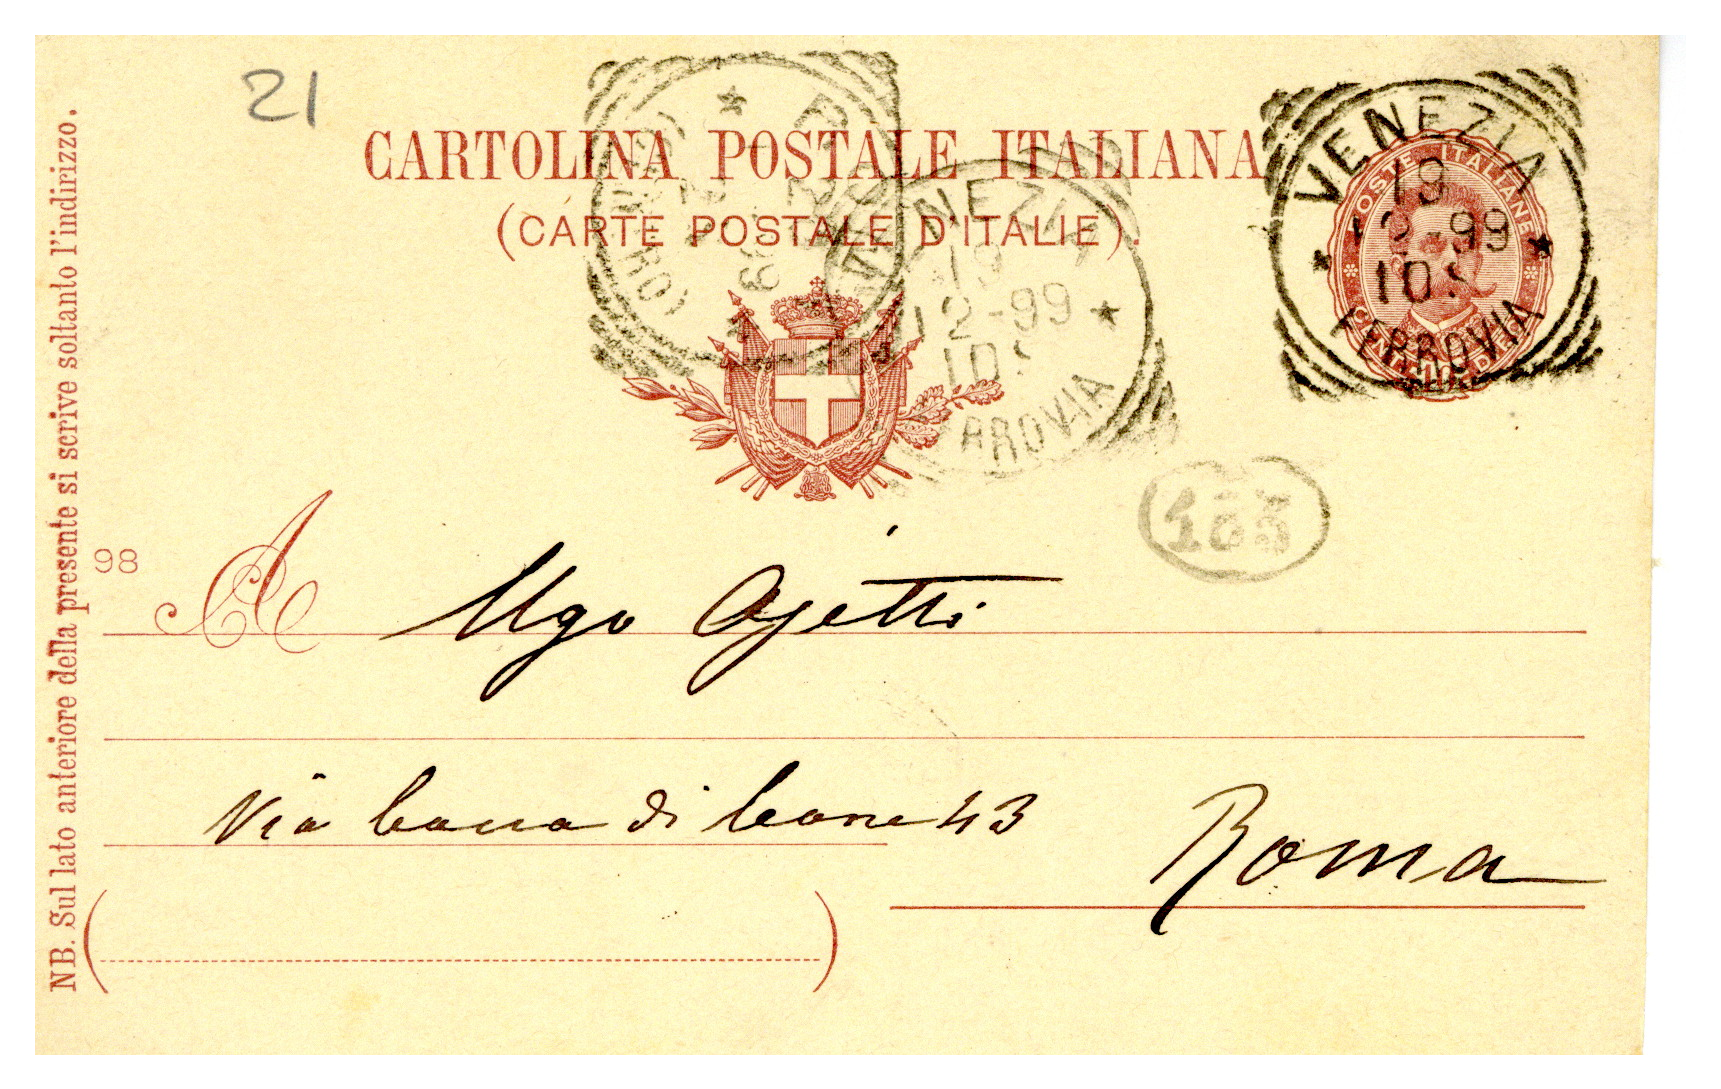 21
CARTOLINA POSTALE ITALIANA
(CARTE POSTALE D'ITALIE).
VENEZIA
19
12-99
10S
FERROVIA
POSTE ITALIANE
VENEZIA
19
12-99
10S
RROVIA
ROMA
98
A
Ugo Ojetti
Via bocca di leone 43
Roma
NB. Sul lato anteriore della presente si scrive soltanto l'indirizzo.